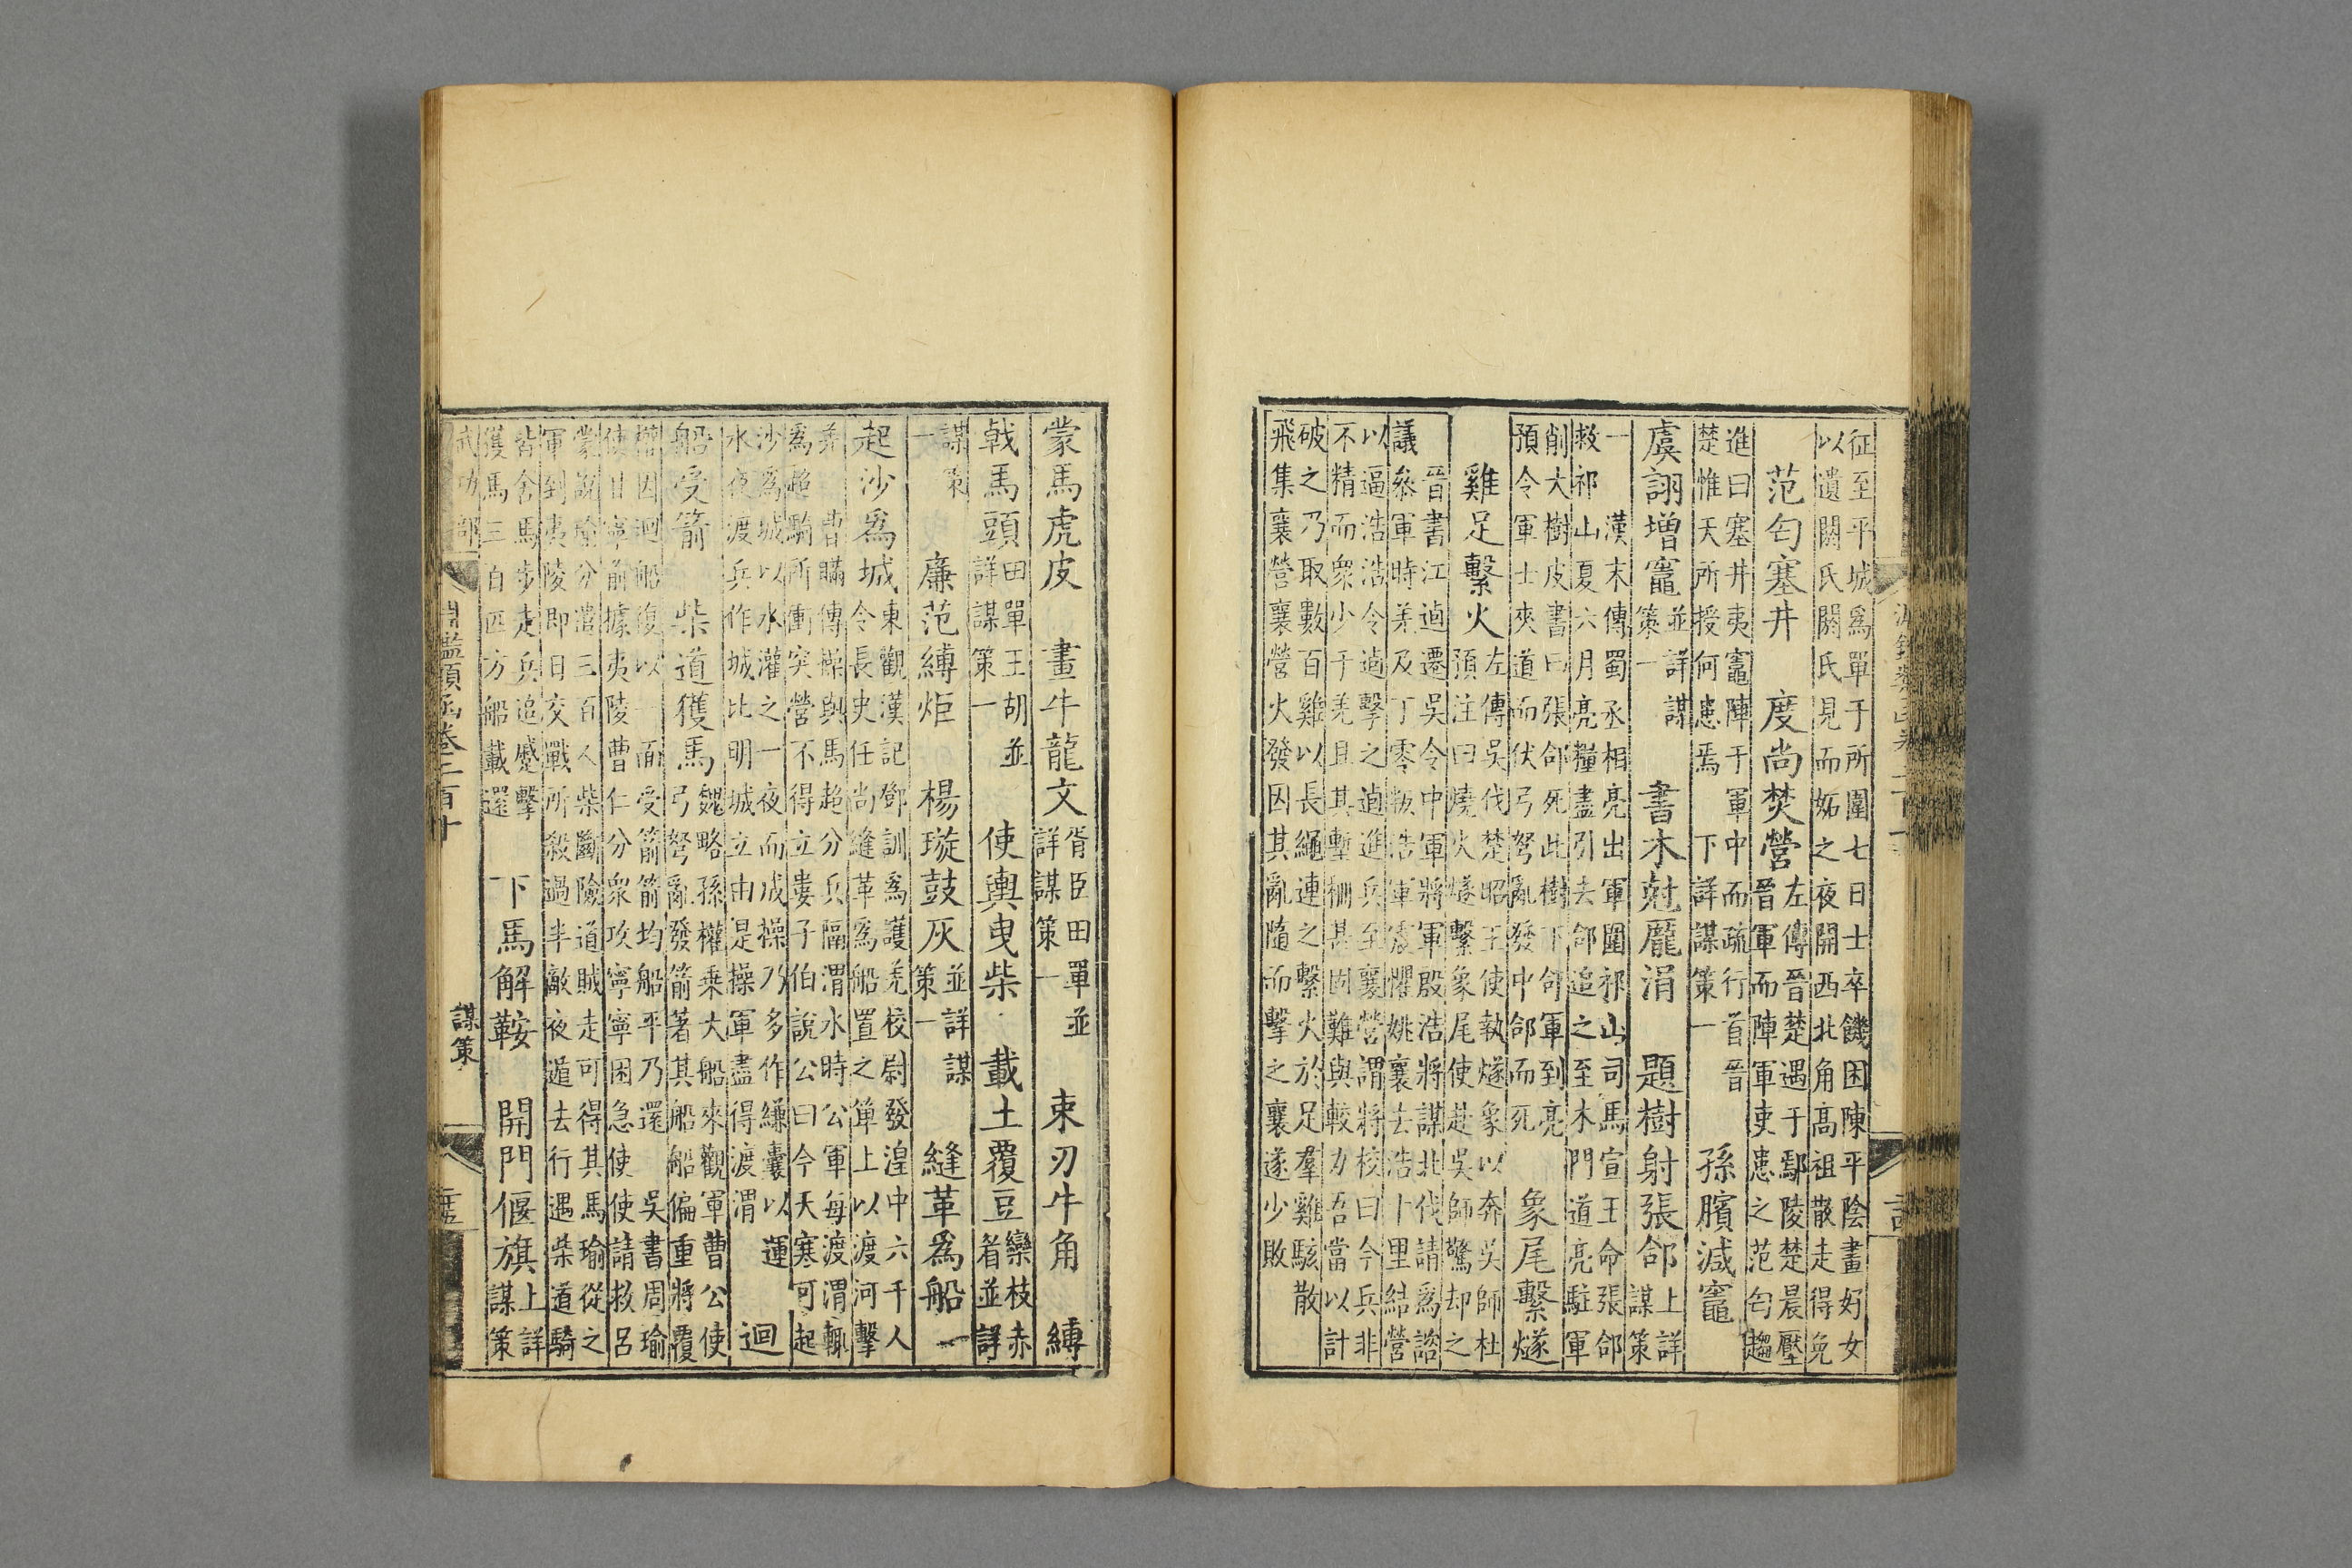 征至平城爲單于所圍七日士卒饑困陳平陰畫好女
以遺閼氏閼氏見而妬之夜開西北角高祖散走得免
范匄塞井　度尚焚營
左傳晉楚遇于鄢陵楚晨壓
晉軍而陣軍吏患之范匄趨
進曰塞井夷竈陣于軍中而疏行首晉
楚惟天所授何患焉　下詳謀策一
孫臏減竈
虞詡增竈
並詳謀
策一
書木尅龐涓　題樹射張郃
上詳
謀策
一　漢末傳蜀丞相亮出軍圍祁山司馬宣王命張郃
救祁山夏六月亮糧盡引去郃追之至木門道亮駐軍
削大樹皮書曰張郃死此樹下郃軍到亮
預令軍士夾道而伏弓弩亂發中郃而死
象尾繫燧
雞足繫火
左傳吳伐楚昭王使執燧象以奔吳師杜
預注曰燒火燧繫象尾使赴吳師驚却之
晉書江逌遷吳令中軍將軍殷浩將謀北伐請爲諮
議叅軍時羌及丁零叛浩軍震懼姚襄去浩十里結營
以逼浩浩令逌擊之逌進兵至襄營謂將校曰今兵非
不精而衆少于羌且其塹柵甚固難與較力吾當以計
破之乃取數百雞以長繩連之繫火於足羣雞駭散
飛集襄營襄營火發因其亂隨而擊之襄遂少敗
蒙馬虎皮　畫牛龍文
胥臣田單並
詳謀策一
束刃牛角　縛
戟馬頭
田單王胡並
詳謀策一
使輿曳柴　載土覆豆
欒枝赤
眉並詳
謀策
一
廉范縛炬　楊璇鼓灰
並詳謀
策一
縫革爲船　一
起沙爲城
東觀漢記鄧訓爲護羌校尉發湟中六千人
令長史任尚縫革爲船置之箄上以渡河擊
羌　曹瞞傳操與馬超分兵隔渭水時公軍每渡渭輒
爲超騎所衝突營不得立婁子伯說公曰今天寒可起
沙爲城以水灌之一夜而成操乃多作縑囊以運
水夜渡兵作城比明城立由是操軍盡得渡渭
迴
船受箭　柴道獲馬
魏略孫權乗大船來觀軍曹公使
弓弩亂發箭著其船船偏重將覆
權因迴船復以一面受箭箭均船平乃還　吳書周瑜
使甘寧前據夷陵曹仁分衆攻寧寧困急使使請救呂
蒙說瑜分遣三百人柴斷險道賊走可得其馬瑜從之
軍到夷陵即日交戰所殺過半敵夜遁去行遇柴道騎
皆舍馬步走兵追蹙擊
獲馬三百匹方船載還
下馬解鞍　開門偃旗
上詳
謀策
武功部　淵鑑類函卷二百十　謀策